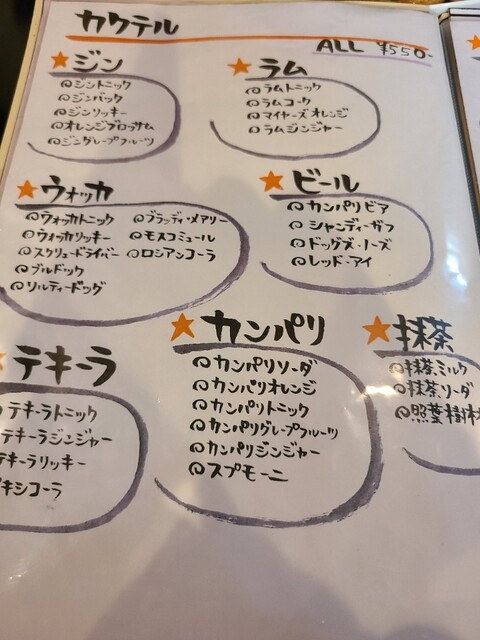 カクテル
ALL ¥550-
ジン
ジントニック
ジンバック
ジンリッキー
オレンジブロッサム
ジングレープフルーツ
ラム
ラムトニック
ラムコーク
マイヤーズオレンジ
ラムジンジャー
ウォッカ
ウォッカトニック
ウォッカリッキー
スクリュードライバー
ブルドック
ソルティードッグ
ブラッディ・メアリー
モスコミュール
ロシアンコーラ
ビール
カンパリビア
シャンディーガフ
ドッグズ・ノーズ
レッド・アイ
テキーラ
テキーラトニック
テキーラジンジャー
テキーラリッキー
キシコーラ
カンパリ
カンパリソーダ
カンパリオレンジ
カンパリトニック
カンパリグレープフルーツ
カンパリジンジャー
スプモーニ
抹茶
抹茶ミルク
抹茶ソーダ
照葉樹林